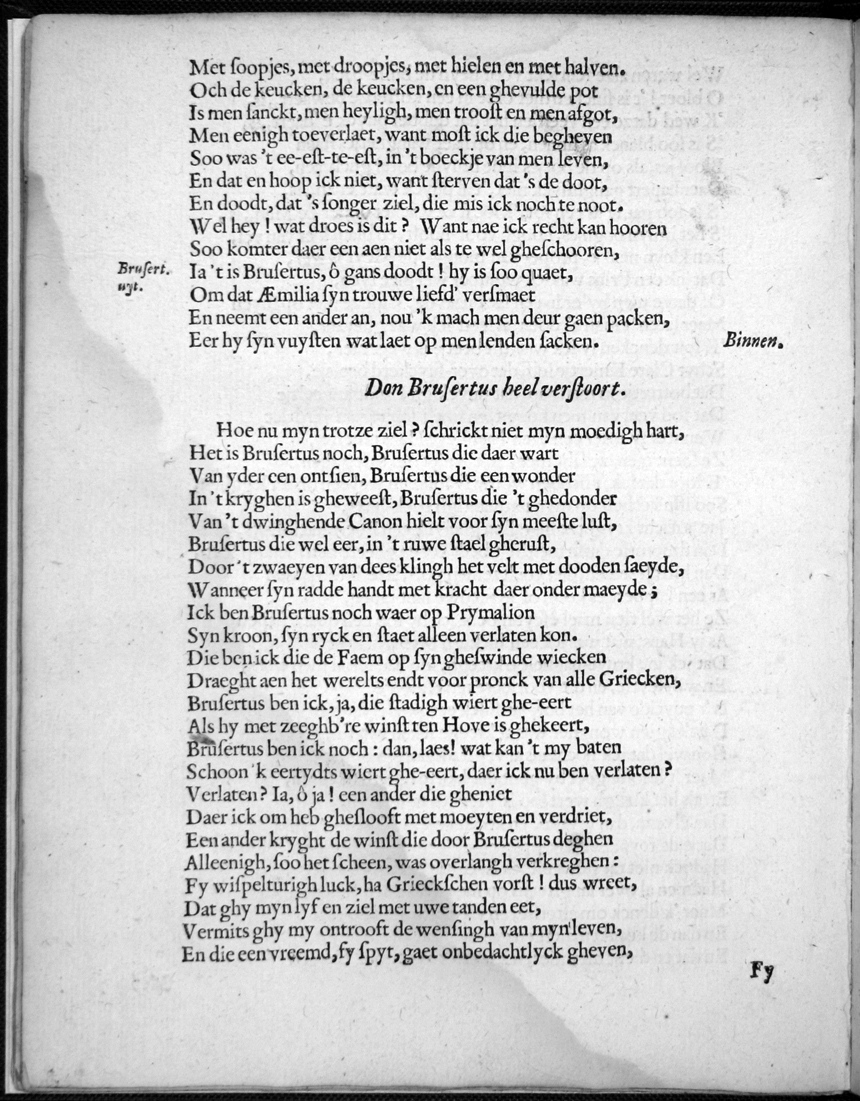 Met ſoopjes, met droopjes, met hielen en met halven.
Och de keucken, de keucken, en een ghevulde pot
Is men ſanckt, men heyligh, men trooſt en men afgot,
Men eenigh toeverlaet, want moſt ick die begheven
Soo was 't ee-eſt-te-eſt, in 't boeckje van men leven,
En dat en hoop ick niet, want ſterven dat 's de doot,
En doodt, dat 's ſonger ziel, die mis ick noch te noot.
Wel hey ! wat droes is dit ? Want nae ick recht kan hooren
Soo komter daer een aen niet als te wel gheſchooren,
Bruſert. uyt. Ia 't is Bruſertus, ô gans doodt ! hy is ſoo quaet,
Om dat Æmilia ſyn trouwe liefd' verſmaet
En neemt een ander an, nou 'k mach men deur gaen packen,
Eer hy ſyn vuyſten wat laet op men lenden ſacken. Binnen.
Don Bruſertus heel verſtoort.
Hoe nu myn trotze ziel ? ſchrickt niet myn moedigh hart,
Het is Bruſertus noch, Bruſertus die daer wart
Van yder een ontſien, Bruſertus die een wonder
In 't kryghen is gheweeſt, Bruſertus die 't ghedonder
Van 't dwinghende Canon hielt voor ſyn meeſte luſt,
Bruſertus die wel eer, in 't ruwe ſtael gheruſt,
Door 't zwaeyen van dees klingh het velt met dooden ſaeyde,
Wanneer ſyn radde handt met kracht daer onder maeyde ;
Ick ben Bruſertus noch waer op Prymalion
Syn kroon, ſyn ryck en ſtaet alleen verlaten kon.
Die ben ick die de Faem op ſyn gheſwinde wiecken
Draeght aen het werelts endt voor pronck van alle Griecken,
Bruſertus ben ick, ja, die ſtadigh wiert ghe-eert
Als hy met zeeghb're winſt ten Hove is ghekeert,
Bruſertus ben ick noch : dan, laes! wat kan 't my baten
Schoon 'k eertydts wiert ghe-eert, daer ick nu ben verlaten ?
Verlaten ? Ia, ô ja ! een ander die gheniet
Daer ick om heb gheſlooft met moeyten en verdriet,
Een ander kryght de winſt die door Bruſertus deghen
Alleenigh, ſoo het ſcheen, was overlangh verkreghen :
Fy wiſpelturigh luck, ha Grieckſchen vorſt ! dus wreet,
Dat ghy myn lyf en ziel met uwe tanden eet,
Vermits ghy my ontrooft de wenſingh van myn leven,
En die een vreemd, fy ſpyt, gaet onbedachtlyck gheven,
Fy